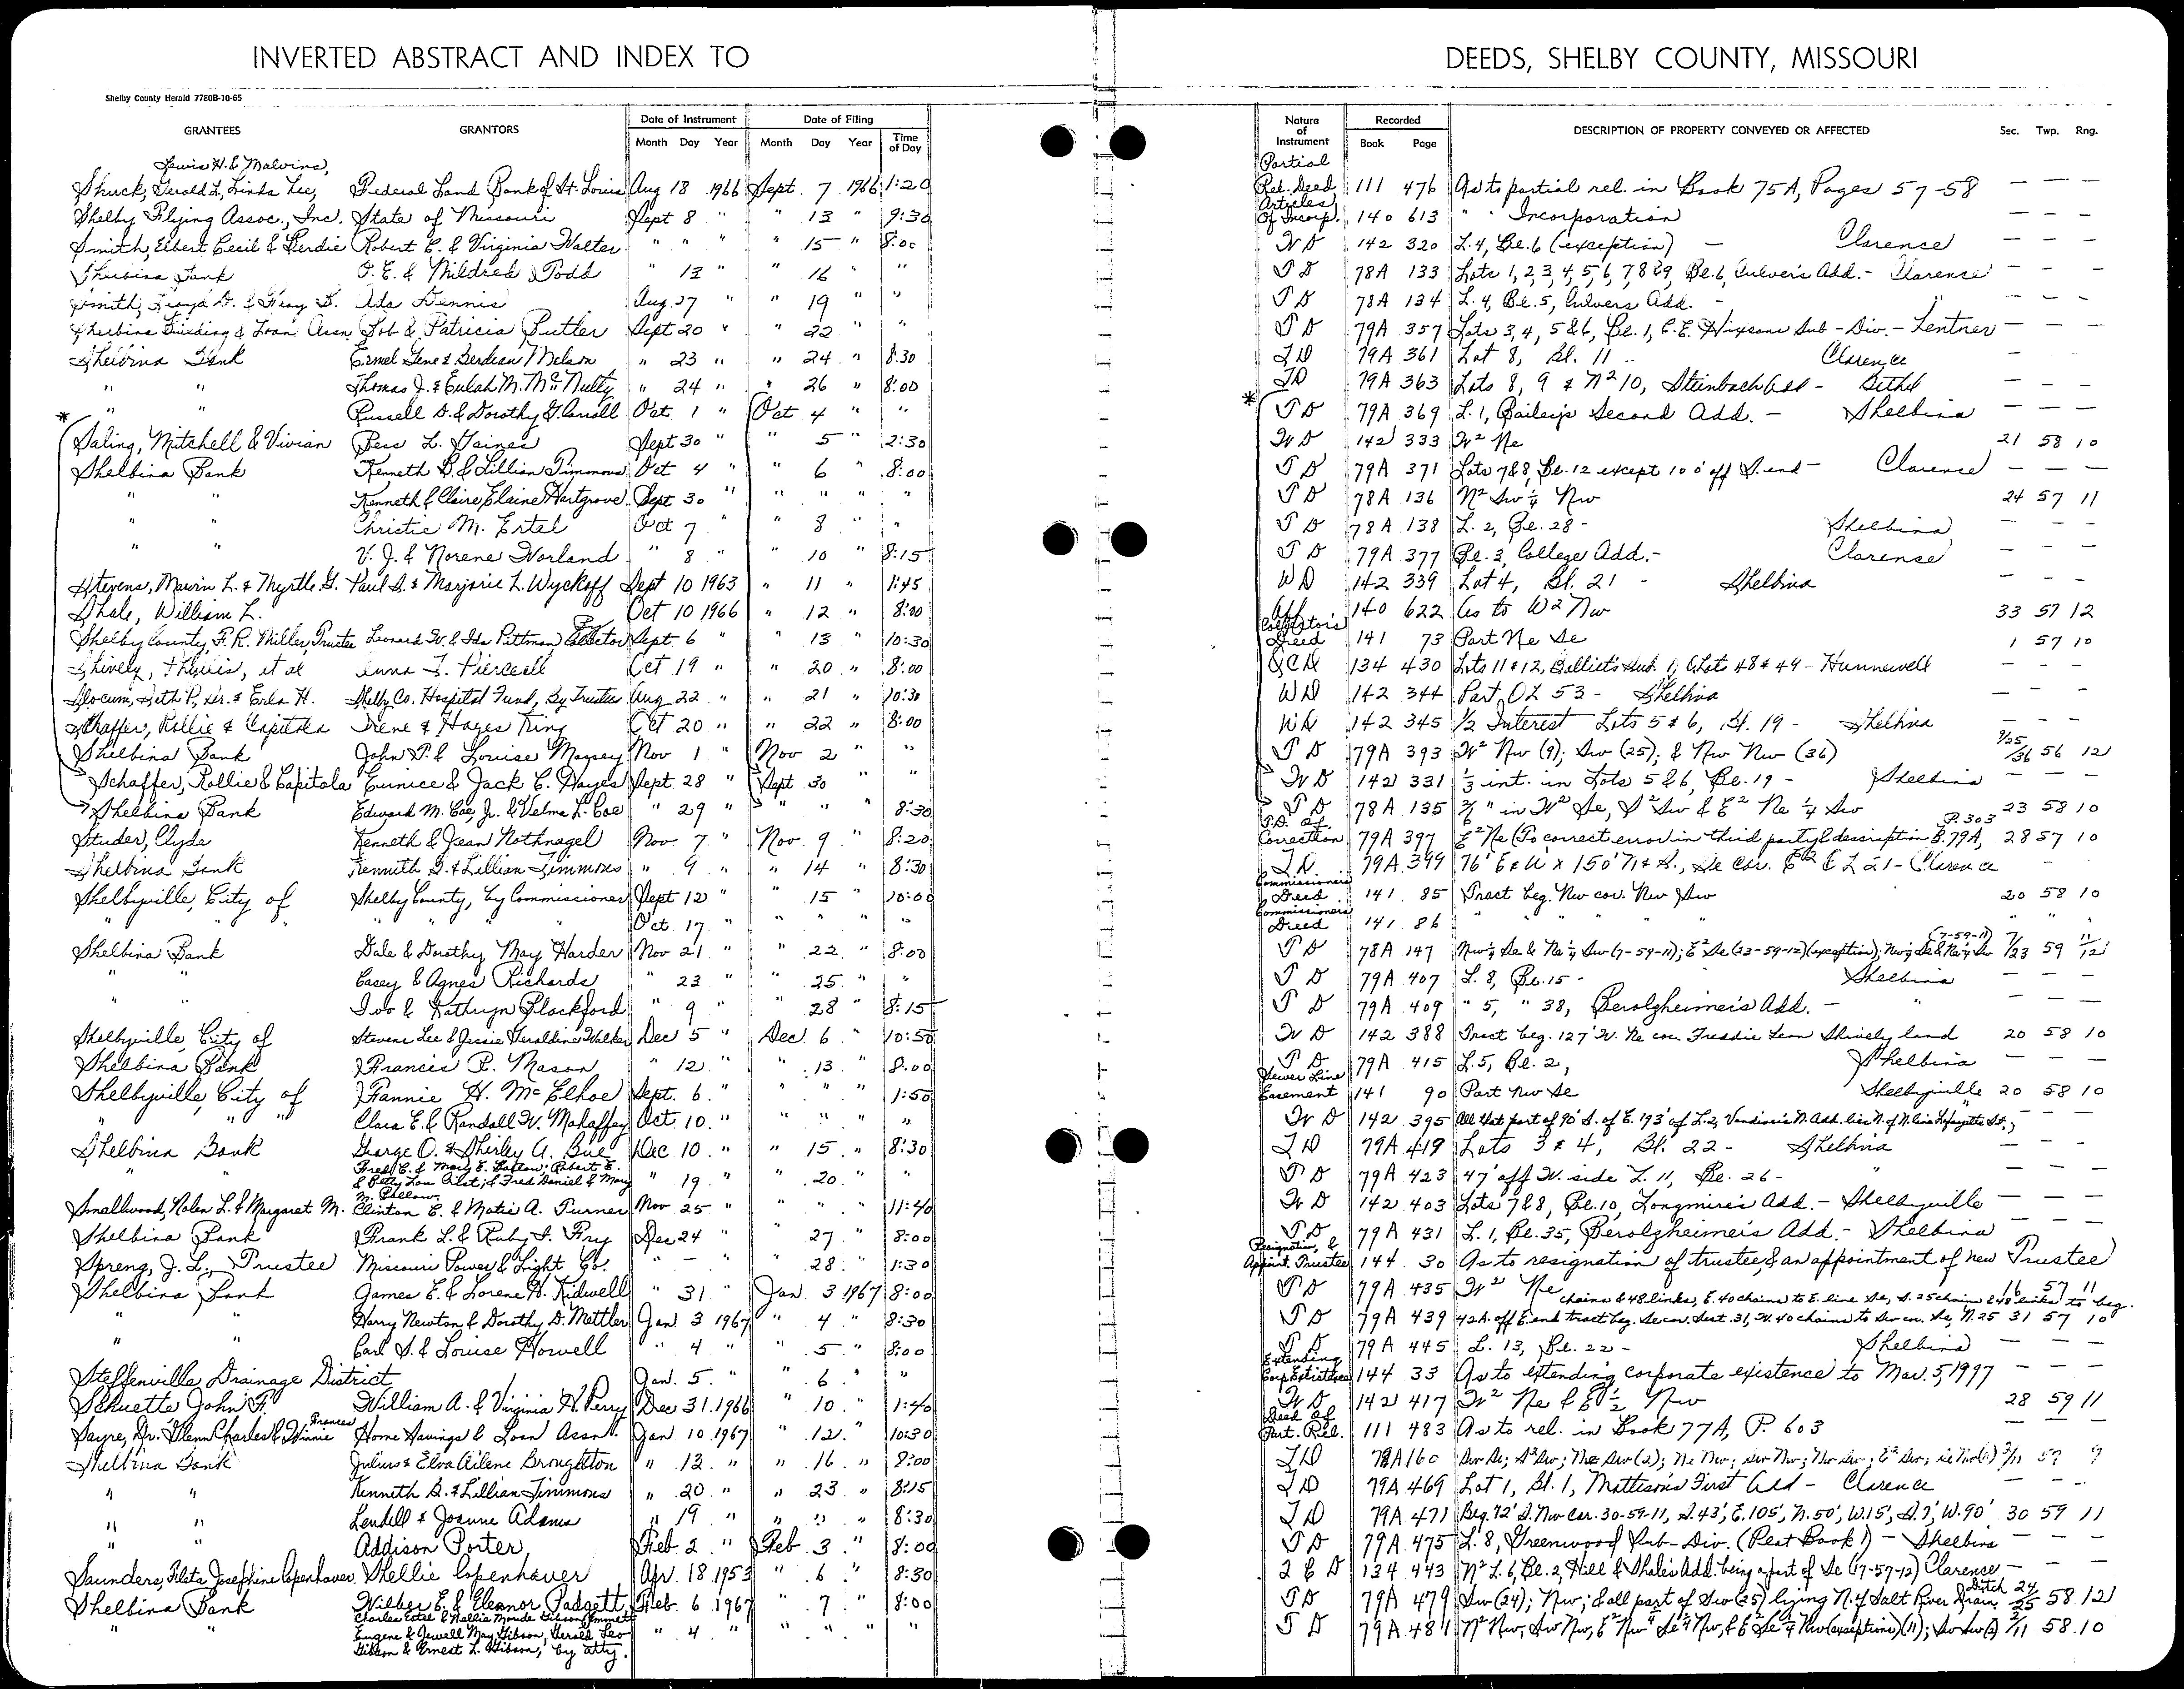 INVERTED ABSTRACT AND INDEX TO DEEDS, SHELBY COUNTY, MISSOURI
Shelby County Herald 7780B-10-65
GRANTEES GRANTORS Date of Instrument Month Day Year Date of Filing Month Day Year Time of Day Nature of Instrument Recorded Book Page DESCRIPTION OF PROPERTY CONVEYED OR AFFECTED Sec. Twp. Rng.
Lewis H. & Malvina, Partial
Shuck, Gerald L., Linda Lee, Federal Land Bank of St. Louis Aug 18 1966 Sept 7 1966 1:20 Rel. Deed 111 476 As to partial rel. in Book 75A, Pages 57-58 — — —
Shelby Flying Assoc., Inc. State of Missouri Sept 8 " " 13 " 9:30 Articles Of Incorp. 140 613 " " Incorporation — — —
Smith, Elbert Cecil & Berdie Robert C. & Virginia Walter " " " " 15 " 8:00 W D 142 320 L. 4, Bl. 6 (exception) — Clarence — — —
Shelbina Bank O. E. & Mildred Todd " 13 " " 16 " " T D 78A 133 Lots 1, 2, 3, 4, 5, 6, 7, 8 & 9, Bl. 6, Culver's Add. - Clarence — — —
Smith, Lloyd D. & Fray B. Ada Dennis Aug 27 " " 19 " " T D 78A 134 L. 4, Bl. 5, Culvers Add. - " — — —
Shelbina Building & Loan Assn Bob & Patricia Butler Sept 20 " " 22 " " T D 79A 357 Lots 3, 4, 5 & 6, Bl. 1, C.E. Hixsons Sub-Div. - Lentner — — —
Shelbina Bank Ermel Gene & Berdean Melson " 23 " " 24 " 8:30 T D 79A 361 Lot 8, Bl. 11 - Clarence — — —
" " Thomas J. & Eulah M. McNulty " 24 " " 26 " 8:00 T D 79A 363 Lots 8, 9 & N2 10, Steinbach Add - Bethel — — —
* " " Russell D. & Dorothy G. Carroll Oct 1 " Oct 4 " " * T D 79A 369 L. 1, Bailey's Second Add. - Shelbina — — —
Saling, Mitchell & Vivian Bess L. Gaines Sept 30 " " 5 " 2:30 W D 142 333 W2 Ne 21 58 10
Shelbina Bank Kenneth D. & Lillian Timmons Oct 4 " " 6 " 8:00 T D 79A 371 Lots 7 & 8, Bl. 12 except 100' off S. end - Clarence — — —
" " Kenneth & Claire Elaine Hartgrove Sept 30 " " " " " T D 78A 136 N2 Sw 1/4 Nw 24 57 11
" " Christie M. Ertel Oct 7 " " 8 " " T D 78A 138 L. 2, Bl. 28 - Shelbina — — —
" " V. J. & Norene Worland " 8 " " 10 " 8:15 T D 79A 377 Bl. 3, College Add. - Clarence — — —
Stevens, Marvin L. & Myrtle G. Paul D. & Marjorie L. Wyckoff Sept 10 1963 " 11 " 1:45 W D 142 339 Lot 4, Bl. 21 - Shelbina — — —
Shale, William L. Oct 10 1966 " 12 " 8:00 Aff 140 622 As to W2 Nw 33 57 12
Shelby County, F. R. Miller, Trustee Leonard W. & Ida Pittman, By Collector Sept 6 " " 13 " 10:30 Collector's Deed 141 73 Part Ne Se 1 57 10
Shively, Phyllis, et al Anna F. Pierceall Oct 19 " " 20 " 8:00 Q C D 134 430 Lots 11 & 12, Sub. 1, & Lots 48 & 49 - Hunnewell — — —
Slocum, Seth P., Sr. & Erla H. Shelby Co. Hospital Fund, By Trustee Aug 22 " " 21 " 10:30 W D 142 344 Part OL 53 - Shelbina — — —
Schaffer, Rollie & Capitola Irene & Hayes King Oct 20 " " 22 " 8:00 W D 142 345 1/2 Interest Lots 5 & 6, Bl. 19 - Shelbina — — —
Shelbina Bank John P. & Louise Maysey Nov 1 " Nov 2 " " T D 79A 393 W2 Nw (9); Sw (25); & Nw Nw (36) 9/25/36 56 12
Schaffer, Rollie & Capitola Eunice & Jack C. Hayes Sept 28 " Sept 30 " W D 142 331 1/3 int. in Lots 5 & 6, Bl. 19 - Shelbina — — —
Shelbina Bank Edward M. Coe, Jr. & Velma L. Coe " 29 " " " 8:30 T D 78A 135 " in W2 Se, S2 Sw & E2 Ne 1/4 Sw 23 58 10
Studer, Clyde Kenneth & Jean Nothnagel Nov. 7 " Nov. 9 " 8:20 T.D. Of Correction 79A 397 E2 Ne (To correct error in third party & description B. 79A, P. 303 28 57 10
Shelbina Bank Kenneth D. & Lillian Timmons " 9 " " 14 " 8:30 T D 79A 399 76' E & W x 150' N & S., Se cor. E2 OL 21 - Clarence —
Shelbyville, City of Shelby County, by Commissioner Sept 12 " " 15 " 10:00 Commissioner's Deed 141 85 Tract beg. Nw cor. Nw Sw 20 58 10
" " " " " " Oct. 17 " " " " " Commissioner's Deed 141 86 " " " " " "
Shelbina Bank Dale & Dorothy May Harder Nov 21 " " 22 " 8:00 T D 78A 147 Nw 1/4 Se & Ne 1/4 Sw (7-59-11); E2 Se (23-59-12) (exception); Nw 1/4 Se & Ne 1/4 Sw (7-59-11) 7/23 59 11/12
" " Casey & Agnes Richards " 23 " " 25 " " T D 79A 407 L. 8, Bl. 15 - Shelbina — — —
" " Ivo & Kathryn Blackford " 9 " " 28 " 8:15 T D 79A 409 " 5, " 38, Berolzheimer's Add. - " — — —
Shelbyville, City of Stevens Lee & Jessie Geraldine Walker Dec 5 " Dec. 6 " 10:50 W D 142 388 Tract beg. 127' W. Ne cor. Freddie Leon Shively land 20 58 10
Shelbina Bank Francis P. Mason " 12 " " 13 " 8:00 T D 79A 415 L. 5, Bl. 2, Shelbina — — —
Shelbyville, City of Fannie H. McElhoe Sept. 6 " " " " 1:50 Sewer Line Easement 141 90 Part Nw Se Shelbyville 20 58 10
" " " Clara E. & Randall W. Mahaffey Oct. 10 " " " " " W D 142 395 All that part of 90' S. of E. 193' of L. 2, Vandiver's N. Add. lies N. of N. line Lafayette St., — — —
Shelbina Bank George O. & Shirley A. Bue Dec. 10 " " 15 " 8:30 T D 79A 419 Lots 3 & 4, Bl. 22 - Shelbina — — —
" " Fred C. & Mary E. Barlow; Robert E. & Betty Lou Gilst; & Fred Daniel & Mary M. Ballow " 19 " " 20 " T D 79A 423 47' off W. side L. 11, Bl. 26 - " — — —
Smallwood, Nolen L. & Margaret M. Clinton E. & Matie A. Turner Nov. 25 " " " " 11:40 W D 142 403 Lots 7 & 8, Bl. 10, Longmire's Add. - Shelbyville — — —
Shelbina Bank Frank L. & Ruby I. Fry Dec 24 " " 27 " 8:00 T D 79A 431 L. 1, Bl. 35, Berolzheimer's Add. - Shelbina — — —
Spreng, J. L., Trustee Missouri Power & Light Co. " — " " 28 " 1:30 Resignation, & Appoint. Trustee 144 30 As to resignation of trustee, & an appointment of new Trustee
Shelbina Bank James E. & Lorene H. Kidwell " 31 " Jan. 3 1967 8:00 T D 79A 435 W2 Ne 11 57 11
" " Harry Newton & Dorothy D. Mettler Jan 3 1967 " 4 " 8:30 T D 79A 439 42 A. off E. end tract beg. Se cor. Sect. 31, W. 40 chains to Sw cor. Se, N. 25 chains & 48 links, E. 40 chains to E. line Se, S. 25 chains & 48 links to beg. 31 57 10
" " Carl S. & Louise Howell " 4 " " 5 " 8:00 T D 79A 445 L. 13, Bl. 22 - Shelbina — — —
Steffenville Drainage District Jan. 5 " " 6 " " Extending Corp. Existence 144 33 As to extending corporate existence to Mar. 5, 1997 — — —
Schuette John F. William A. & Virginia H. Perry Dec 31 1966 " 10 " 1:40 W D 142 417 W2 Ne & E 1/2 Nw 28 59 11
Sayre, Dr. Glenn Charles & Winnie Frances Home Savings & Loan Assn. Jan 10 1967 " 12 " 10:30 Deed Of Part. Rel. 111 483 As to rel. in Book 77A, P. 603 — — —
Shelbina Bank Julius & Elva Ailene Broughton " 13 " " 16 " 8:00 T D 78A 160 Sw Se; S2 Sw; Ne Sw (2); Ne Nw; Sw Nw; Nw Sw; E2 Sw; 57 9
" " Kenneth D. & Lillian Timmons " 20 " " 23 " 8:15 T D 79A 469 Lot 1, Bl. 1, Mattison's First Add - Clarence — — —
" " Lendell & Joanne Adams " 19 " " " " 8:30 T D 79A 471 Beg. 72' S. Nw Cor. 30-59-11, S. 43', E. 105', N. 50', W. 15', S. 7', W. 90' 30 59 11
" " Addison Porter Feb. 2 " Feb. 3 " 8:00 T D 79A 475 L. 8, Greenwood Sub-Div. (Plat Book 1) - Shelbina — — —
Saunders, Fleta Josephine Copenhaver Shellie Copenhaver Apr. 18 1953 " 6 " 8:30 Q C D 134 443 N2 L. 6, Bl. 2, Hill & Shale's Add. being a part of Se (17-57-12) Clarence — — —
Shelbina Bank Wilber E. & Eleanor Padgett Feb. 6 1967 " 7 " 8:00 T D 79A 479 Sw (24); Nw; & all part of Sw (25) lying N. of Salt River Drain. Ditch 24/25 58 12
" " Charles Estel & Nellie Maude Gibson, Emmett Eugene & Jewell May Gibson, Gerald Leo Gibson & Ernest L. Gibson, by atty. " 4 " " " " " T D 79A 481 N2 Nw, Sw Nw, E2 Nw 1/4 Se 1/4 Nw, & E2 Se 1/4 Nw (exceptions) (11); Sw Sw (2) 2/11 58 10